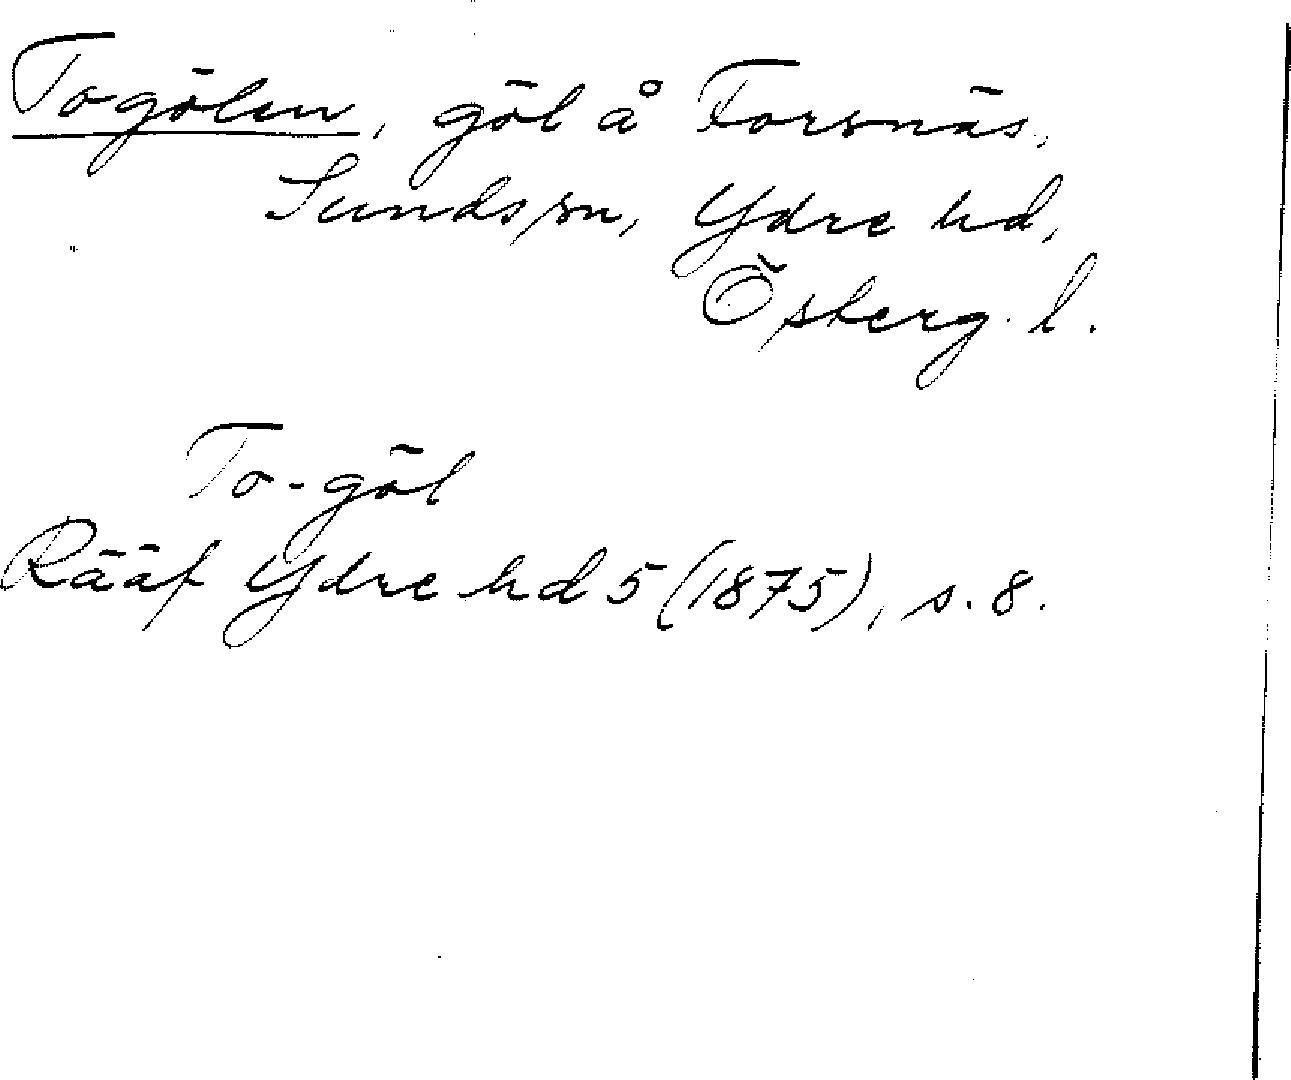 Togölen, göl å Forsnäs,
Sunds sn, Ydre hd,
Österg. l.
To-göl
Rääf Ydre hd 5 (1875), s. 8.